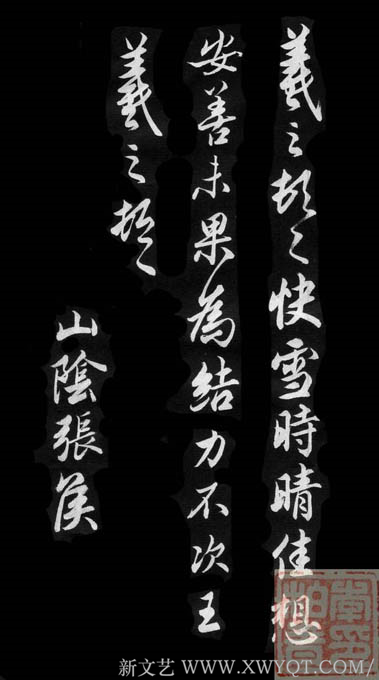 羲之頓〻快雪時晴佳想
安善未果為結力不次王
羲之頓〻
山陰張侯
新文艺 WWW.XWYQT.COM/